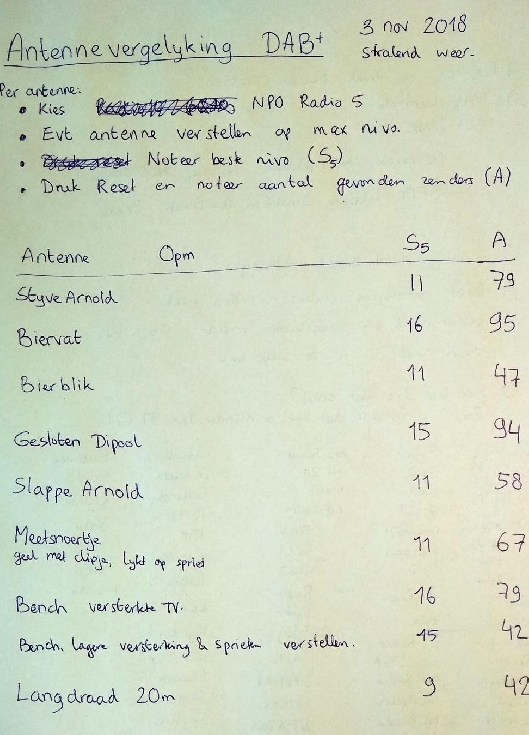 Antennevergelyking DAB+
3 nov 2018
stralend weer.
Per antenne:
• Kies NPO Radio 5
• Evt antenne verstellen op max nivo.
• Noteer beste nivo (S5)
• Druk Reset en noteer aantal gevonden zenders (A)
Antenne Opm S5 A
Styve Arnold 11 79
Biervat 16 95
Bierblik 11 47
Gesloten Dipool 15 94
Slappe Arnold 11 58
Meetsnoertje 11 67
geel met clipje, lykt op spriet
Bench versterkte TV. 16 79
Bench, lagere versterking & sprieten verstellen. 15 42
Langdraad 20m 9 42